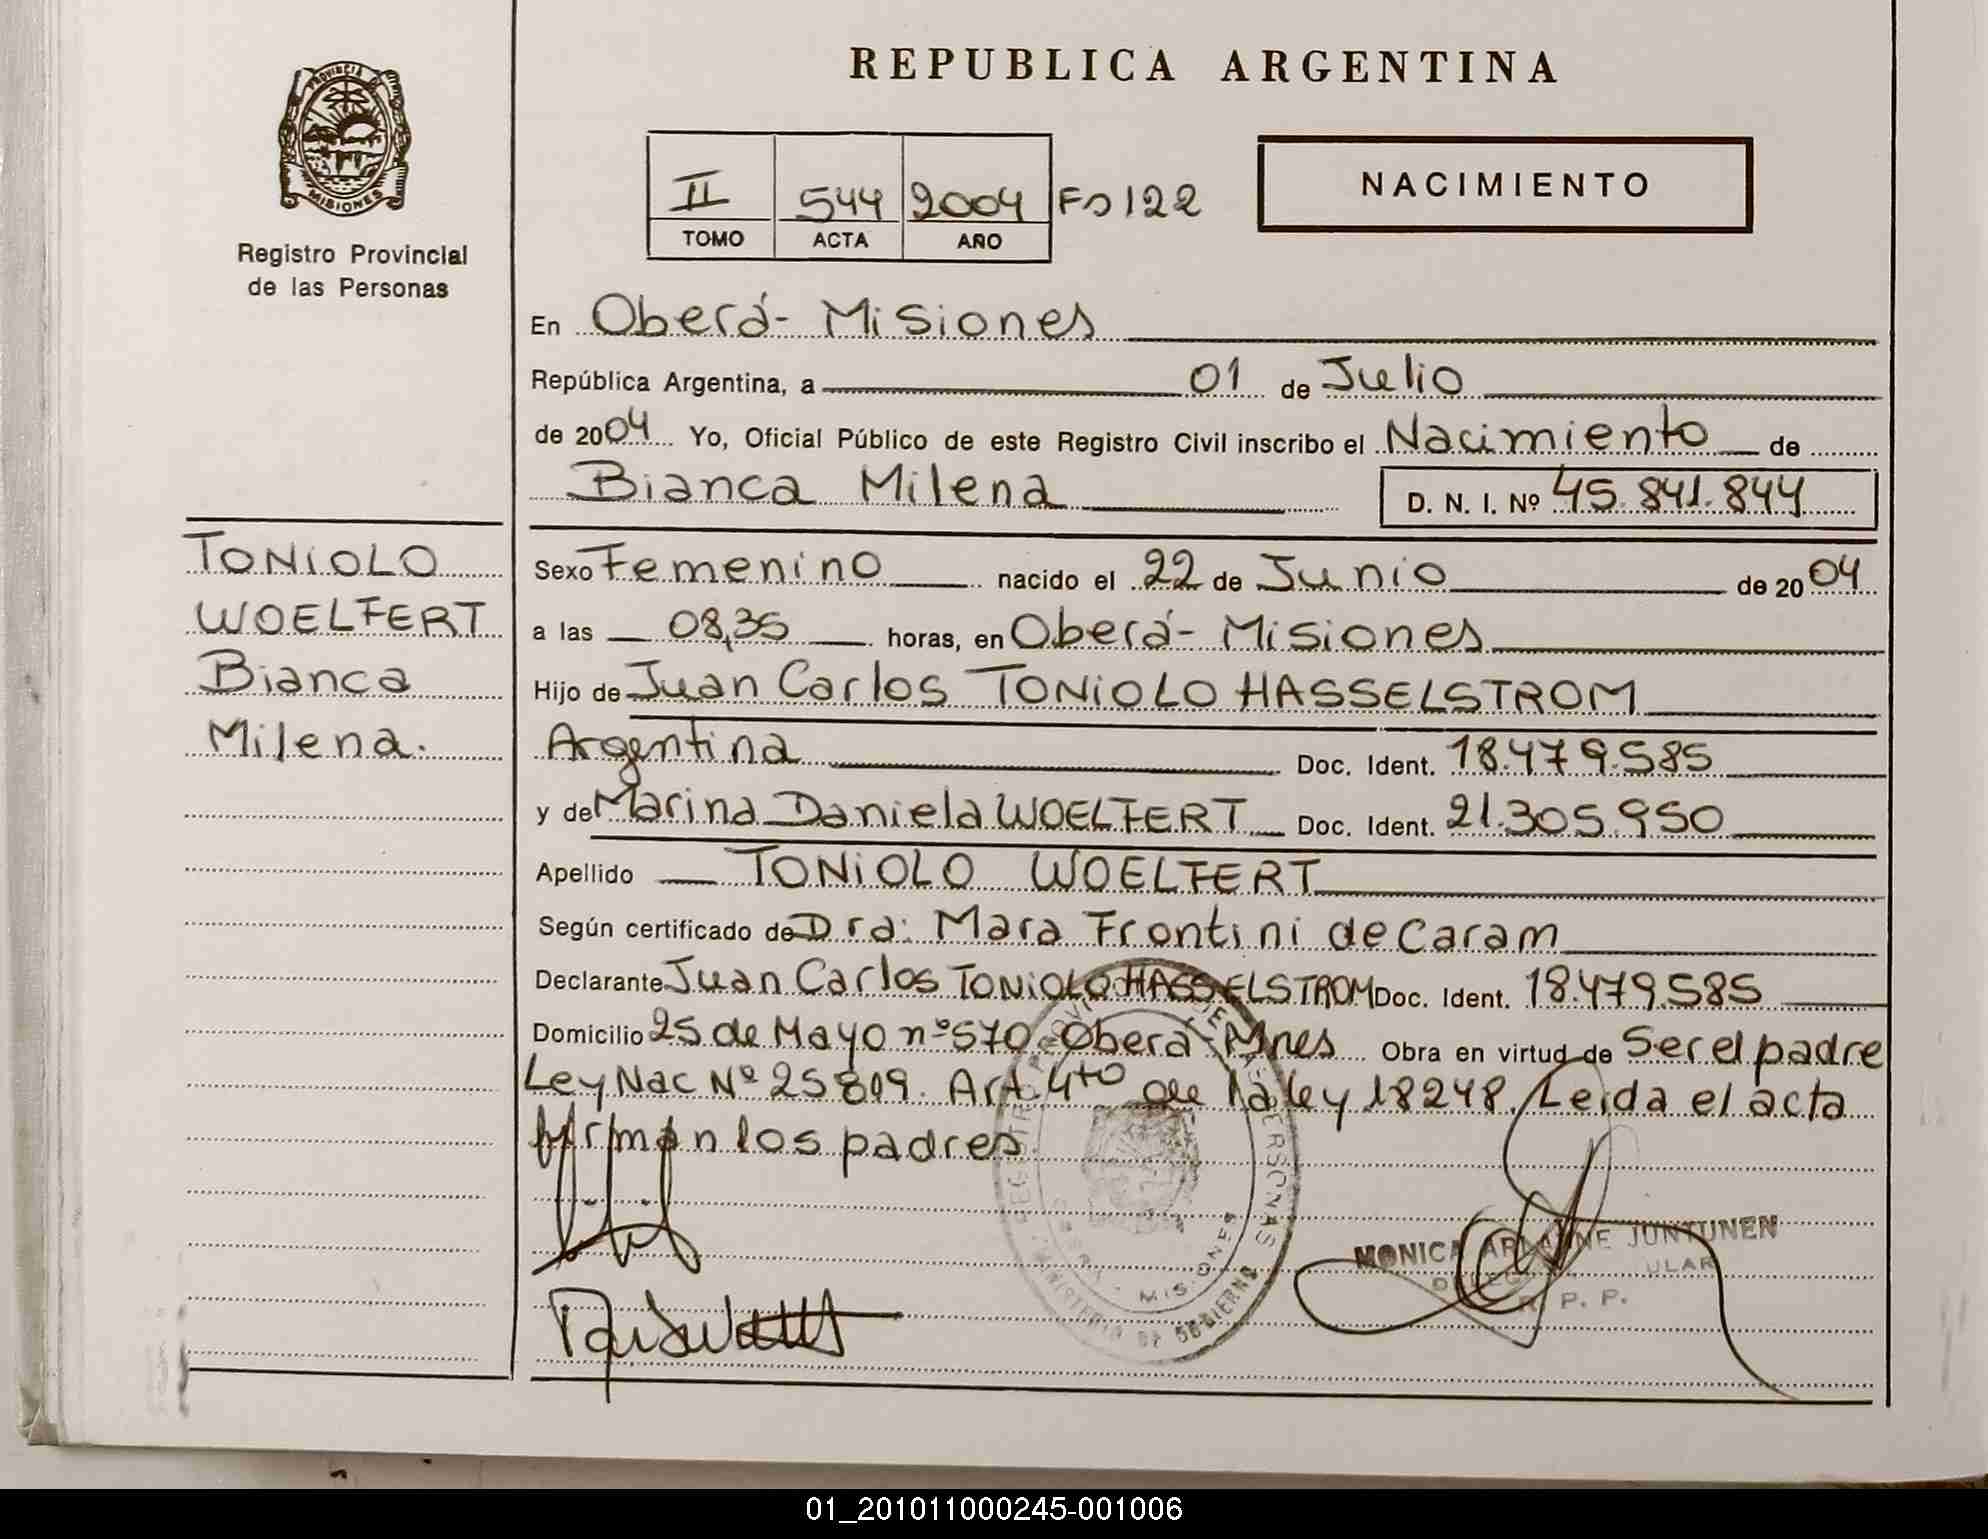 REPUBLICA ARGENTINA
PROVINCIA DE
MISIONES
Registro Provincial
de las Personas
II 544 2004 Fo 122
TOMO ACTA AÑO
NACIMIENTO
En Oberá - Misiones
República Argentina, a 01 de Julio
de 2004 Yo, Oficial Público de este Registro Civil inscribo el Nacimiento de
Bianca Milena D. N. I. Nº 45.841.844
TONIOLO
WOELFERT
Bianca
Milena.
Sexo Femenino nacido el 22 de Junio de 2004
a las 08,35 horas, en Oberá - Misiones
Hijo de Juan Carlos TONIOLO HASSELSTROM
Argentina Doc. Ident. 18.479.585
y de Marina Daniela WOELFERT Doc. Ident. 21.305.950
Apellido TONIOLO WOELFERT
Según certificado de Dra: Mara Frontini de Caram
Declarante Juan Carlos TONIOLO HASSELSTROM Doc. Ident. 18.479.585
Domicilio 25 de Mayo nº 570 Oberá - Mnes Obra en virtud de Ser el padre
Ley Nac Nº 25809. Art. 4to de la ley 18248. Leida el acta
firman los padres
PERSONAS
MISIONES
MINISTERIO DE GOBIERNO
MONICA ARIANNE JUNTUNEN
R. P. P.
01_201011000245-001006